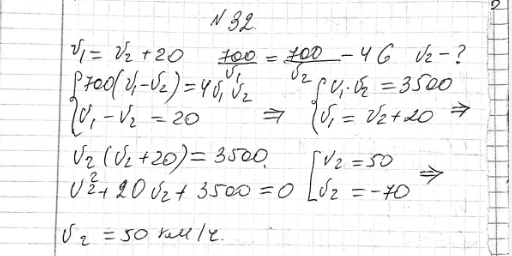 № 32.
v₁ = v₂ + 20 700/v₁ = 700/v₂ - 4 б v₂ - ?
{ 700(v₁ - v₂) = 4v₁v₂ { v₁ · v₂ = 3500
{ v₁ - v₂ = 20 ⇒ { v₁ = v₂ + 20 ⇒
v₂(v₂ + 20) = 3500. [ v₂ = 50
v₂² + 20v₂ + 3500 = 0 [ v₂ = -70 ⇒
v₂ = 50 км/ч.